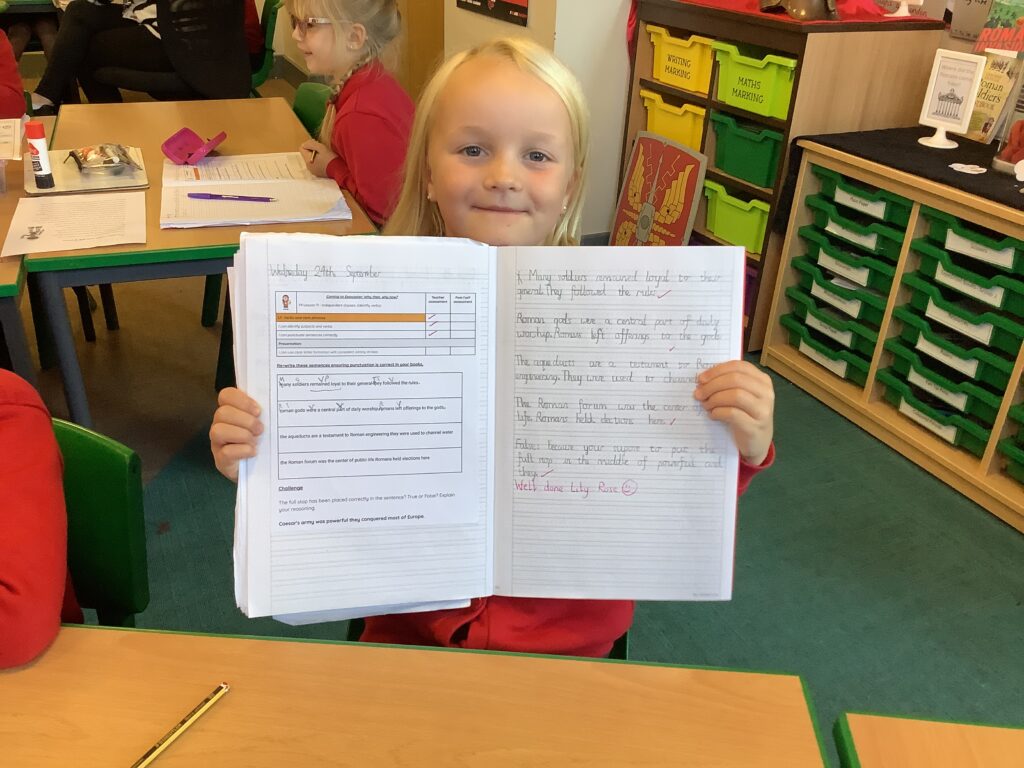 WRITING
MARKING
MATHS
MARKING
Wednesday 24th September
Teacher
assessment
Peer/Self
assessment
I can identify subjects and verbs
I can punctuate sentences correctly
Presentation:
Re-write these sentences ensuring punctuation is correct in your books.
M S VP TS V
many soldiers remained loyal to their general they followed the rules.
roman gods were a central part of daily worship romans left offerings to the gods.
the aqueducts are a testament to Roman engineering they were used to channel water
the Roman forum was the center of public life Romans held elections here
Challenge
The full stop has been placed correctly in the sentence? True or False? Explain
your reasoning.
Caesar's army was powerful they conquered most of Europe.
Many soldiers remained loyal to their
general. They followed the rules
Roman gods were a central part of daily
worship. Romans left offerings to the gods
The aqueducts are a testament to Roman
engineering. They were used to channel
The Roman forum was the center of
life. Romans held elections here.
False because your supose to put the
full stop in the middle of powerful and
they.
Well done Lily Rose